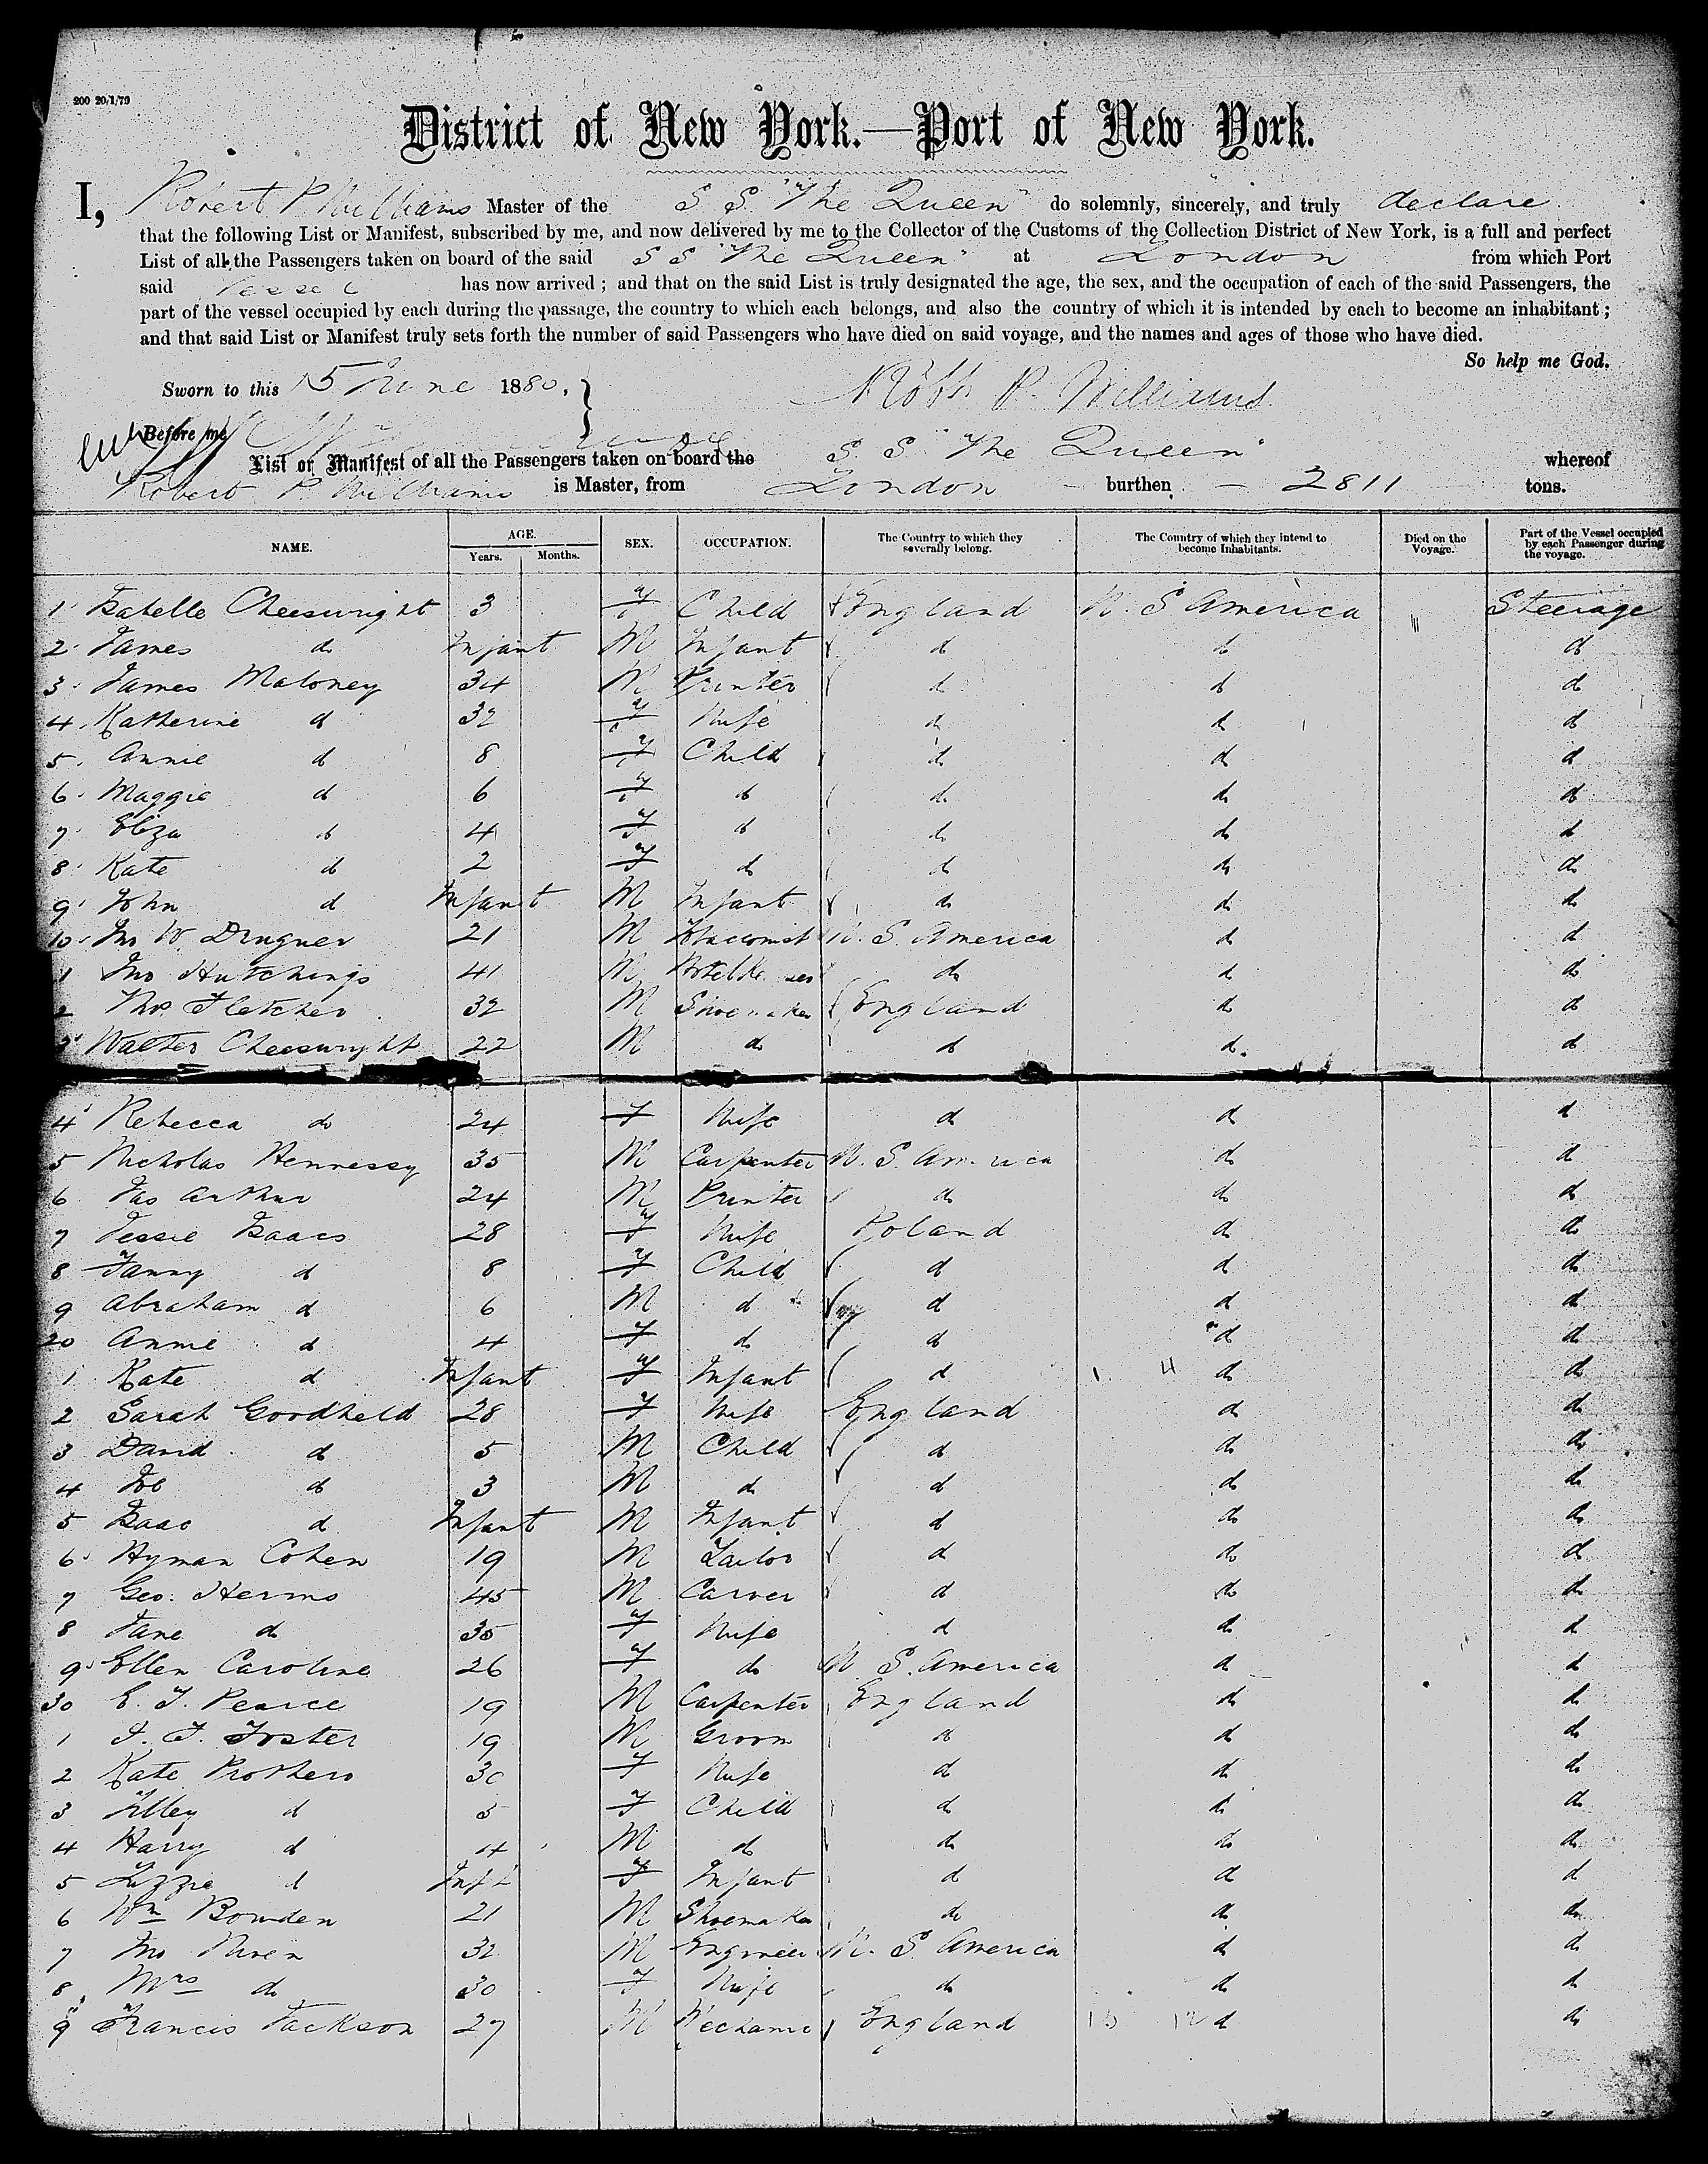 200 20/1/79
District of New York.—Port of New York.
I, Robert P Williams Master of the S. S. "The Queen" do solemnly, sincerely, and truly declare
that the following List or Manifest, subscribed by me, and now delivered by me to the Collector of the Customs of the Collection District of New York, is a full and perfect
List of all the Passengers taken on board of the said S S "The Queen" at London from which Port
said Vessel has now arrived; and that on the said List is truly designated the age, the sex, and the occupation of each of the said Passengers, the
part of the vessel occupied by each during the passage, the country to which each belongs, and also the country of which it is intended by each to become an inhabitant;
and that said List or Manifest truly sets forth the number of said Passengers who have died on said voyage, and the names and ages of those who have died.
So help me God.
Sworn to this 15 June 1880. Robt P. Williams
Before me
List or Manifest of all the Passengers taken on board the S. S. "The Queen" whereof
Robert P. Williams is Master, from London burthen 2811 tons.
NAME. AGE. Years. Months. SEX. OCCUPATION. The Country to which they severally belong. The Country of which they intend to become Inhabitants. Died on the Voyage. Part of the Vessel occupied by each Passenger during the voyage.
1 Isabelle Cheeswright 3 F Child England U. S America Steerage
2 James do Infant M Infant do do do
3 James Maloney 34 M Printer do do do
4 Katherine do 32 F Wife do do do
5 Annie do 8 F Child do do do
6 Maggie do 6 F do do do do
7 Eliza do 4 F do do do do
8 Kate do 2 F do do do do
9 John do Infant M Infant do do do
10 Jno W. 21 M Tobacconist U. S. America do do
1 Jno Hutchings 41 M do do do
2 Thos Fletcher 32 M Shoemaker England do do
3 Walter Cheeswright 22 M do do do do
4 Rebecca do 24 F Wife do do do
5 Nicholas Hennessy 35 M Carpenter U. S. America do do
6 Jas Arthur 24 M Printer do do do
7 Jessie Isaacs 28 F Wife Poland do do
8 Fanny do 8 F Child do do do
9 Abraham do 6 M do do do do
20 Annie do 4 F do do do do
1 Kate do Infant F Infant do do do
2 Sarah Goodheld 28 F Wife England do do
3 David do 5 M Child do do do
4 Job do 3 M do do do do
5 Isaac do Infant M Infant do do do
6 Hyman Cohen 19 M Tailor do do do
7 Geo. Herms 45 M Carver do do do
8 Jane do 35 F Wife do do do
9 Ellen Caroline 26 F do U. S. America do do
30 E. J. Pearce 19 M Carpenter England do do
1 J. J. Foster 19 M Groom do do do
2 Kate Prothero 30 F Wife do do do
3 Tilley do 5 F Child do do do
4 Harry do 4 M do do do do
5 Lizzie do Inft F Infant do do do
6 Wm Bowden 21 M Shoemaker do do do
7 Jno Niven 32 M Engineer U. S. America do do
8 Mrs do 30 F Wife do do do
9 Francis Jackson 27 M Mechanic England do do